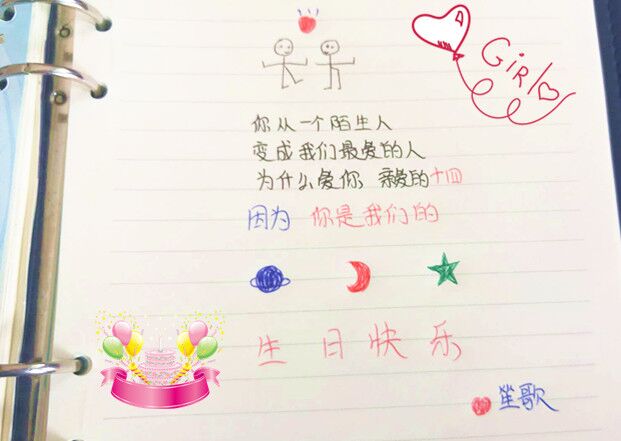 Girl
你从一个陌生人
变成我们最爱的人
为什么爱你 亲爱的十四
因为 你是我们的
生日快乐
笙歌